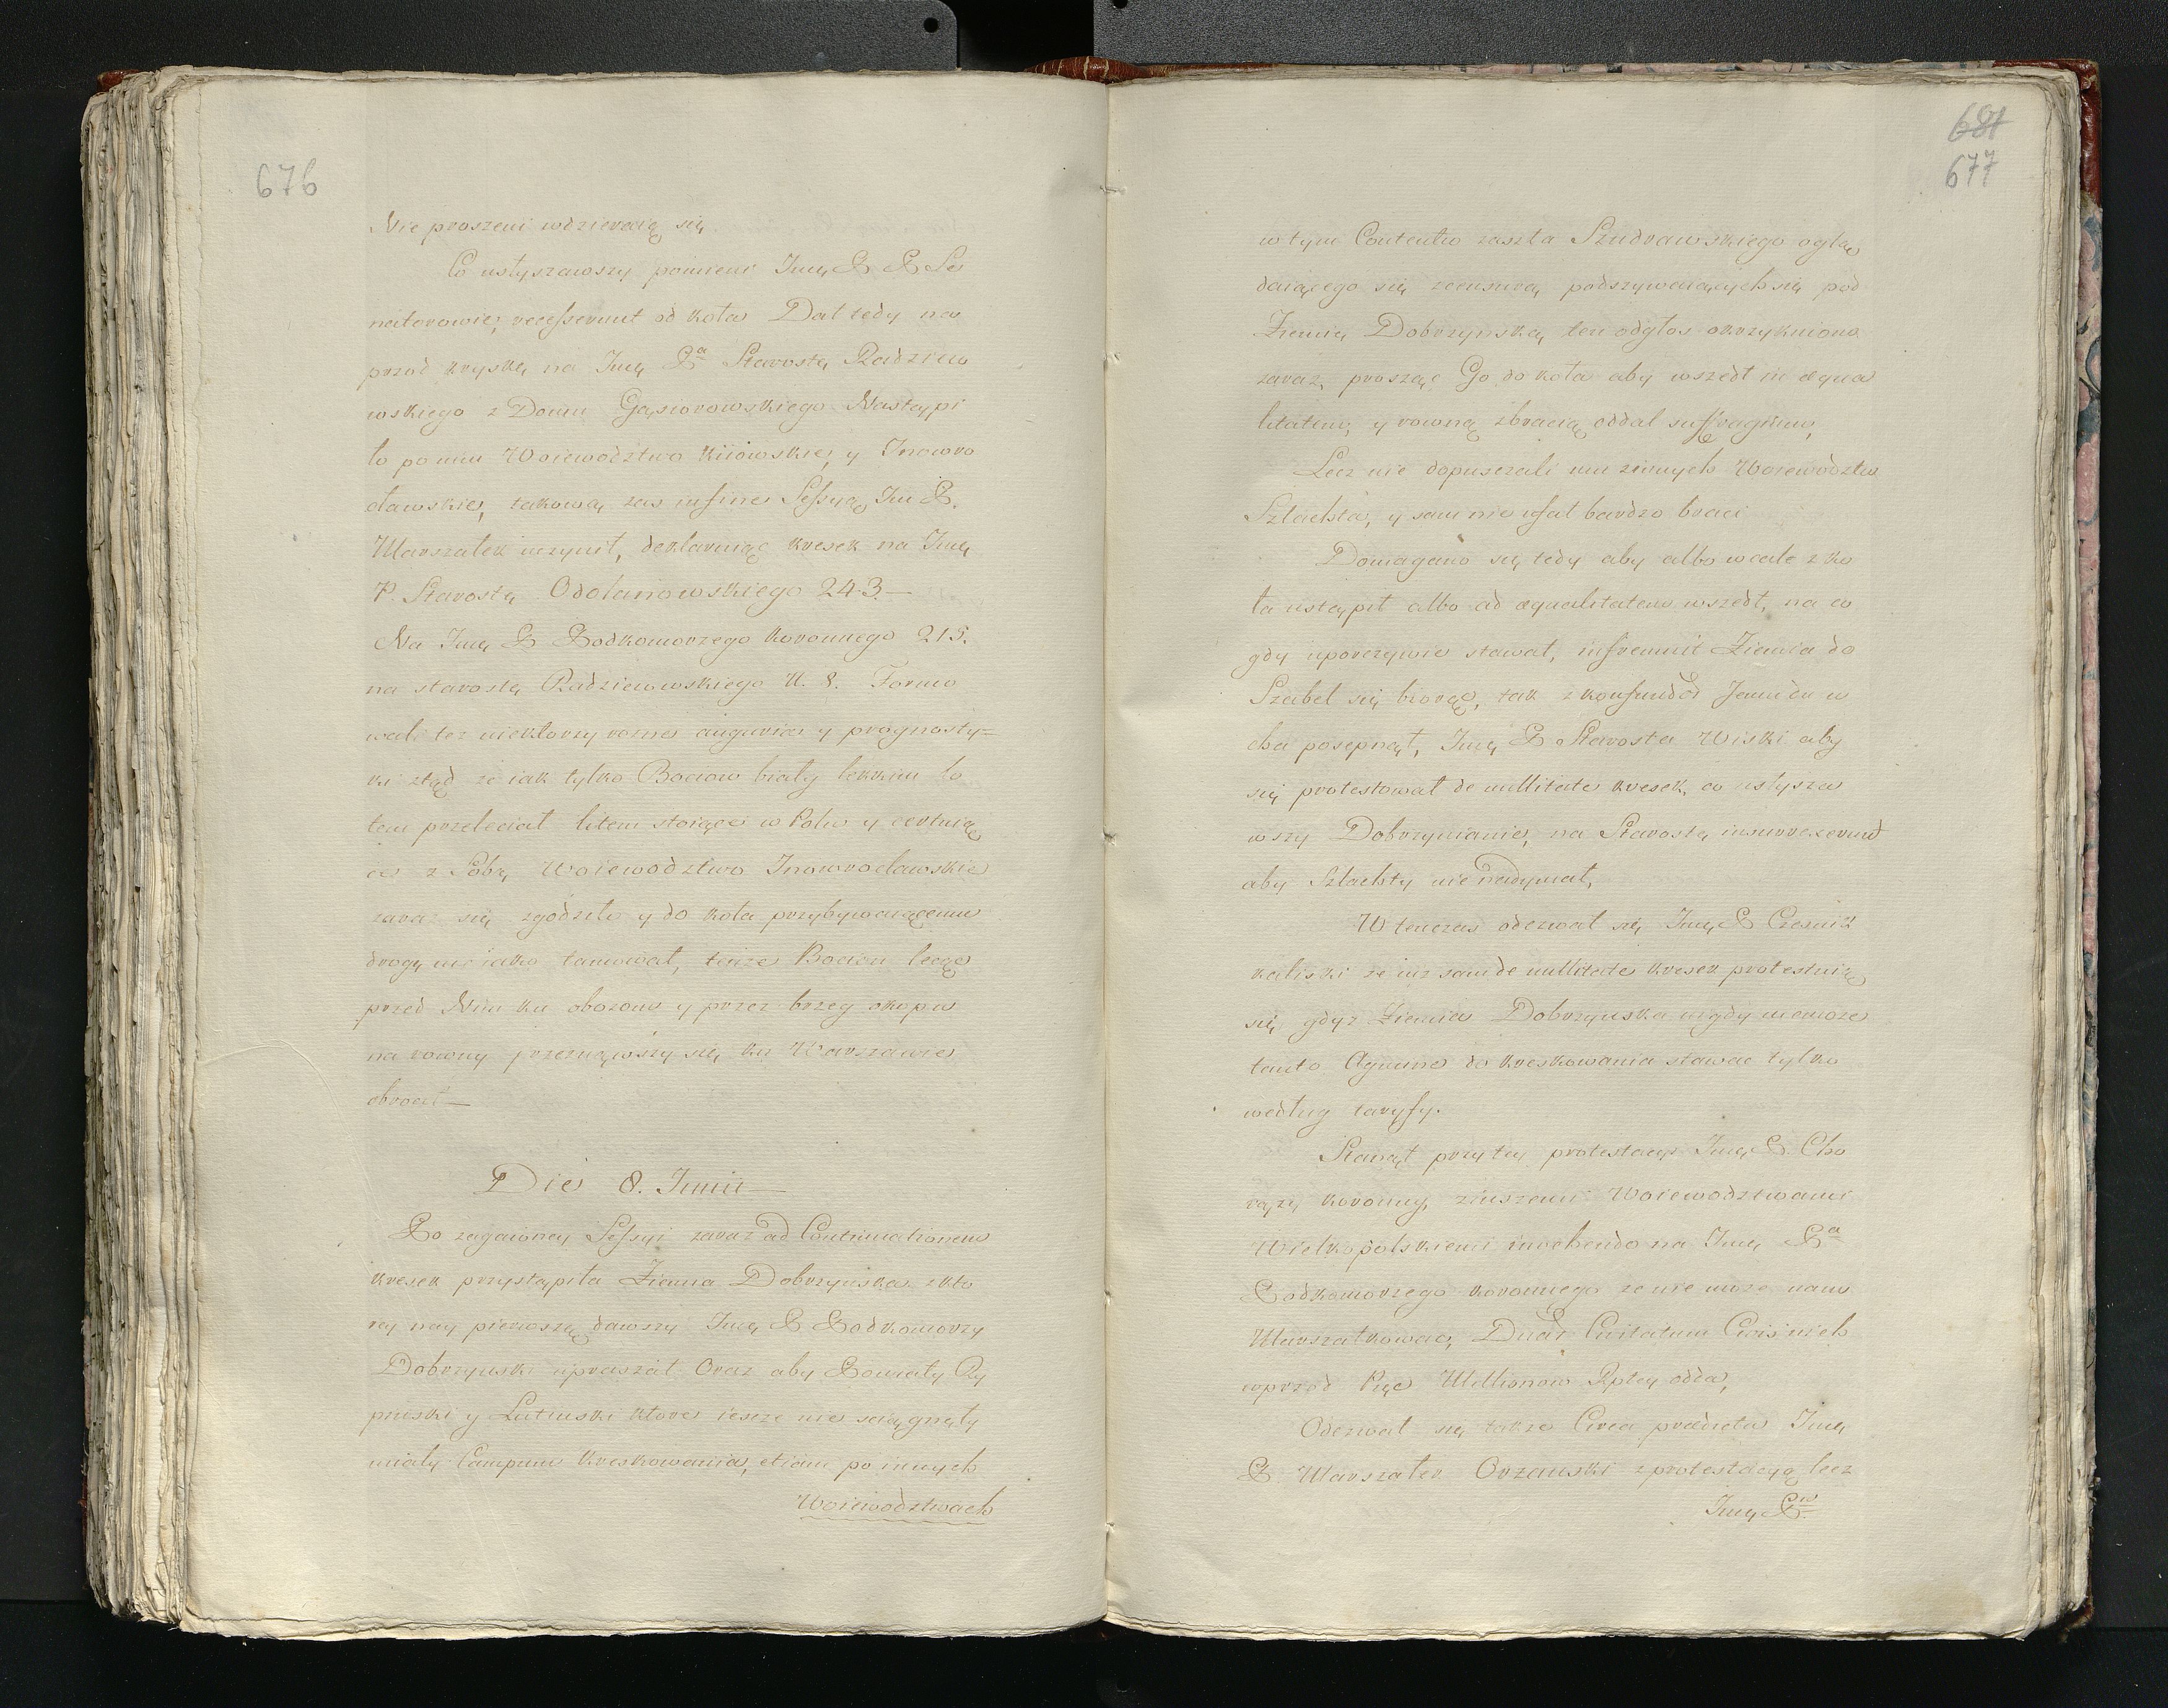 676
Nie proszeni wdzieracią się
Co usłyszawszy pomieni Imę P. P. Se
natorowie, recesserunt od koła Dał tedy na
przod kryskę na Imę Pa Starostę Radzieio
wskiego z Domu Gąsiorowskiego. Nastąpi
ło po nim Woiewodztwo Kiiowskie, y Inowro
cławskie, takową zas in fine Sessyą Im P.
Marszałek uczynił, deklaruiąc kresek na Imę
P. Starostę Odolanowskiego 243.—
Na Imę P. Podkomorzego koronnego 215.
na starostę Radzieiowskiego N. 8. Formo
wali tez niektorzy rozne auguria y prognosty=
ki ztąd ze iak tylko Bocion biały lekkim lo
tem przeleciał litem stoiące w Polu y
z Sobą Woiewodztwo Inowrocławskie
zaraz się zgodziło y do koła przybywaiącemu
drogę nie iako tamował, tenze Bocian lecąc
przed Nim ku obozom y przez brzeg okopu
na rowny przeznąwszy się ku Warszawie
obrocił—
Die 8. Junii—
Po zagaioney Sessyi zaraz ad Continuationem
kresek przystąpiła Ziemia Dobrzynska z kto
rey nay pierwszą dawszy Imę P. Podkomorzy
Dobrzynski upraszał Oraz aby Powiaty Ry
pinski y Lutinski ktore ieszcze nie sciągnęły
miały Campum Kreskowania, etiam po innych
Woiewodztwach
681
677
w tym Contentu zaszła Szudrawskiego oglą
daiącego się z censurą podszywaiących się pod
Ziemię Dobrzynską, ten odgłos okrzykniono
zaraz, prosząc Go do koła aby wszedł in aequa
litatem, y rowną z bracią oddał suffragium,
Lecz nie dopuszczali mu z innych Woiewodztw
Szlachta, y sam nie ufał bardzo braci
Domagano się tedy aby albo wcale z ko
ła ustąpił albo ad aequalitatem wszedł, na co
gdy uporczywie stawał, infremuit Ziemia do
Szabel się biorąc, tak z konfundo Jemu do u
cha posepnął, Imę P. Starosta Wiski aby
się protestował de nullitate kresek, co usłysza
wszy Dobrzynianie, na Starostę insurrexerunt
aby Szlachty nie nadymał,
W tenczas odezwał się Imę P. Czesnik
kaliski ze iuz sam de nullitate kresek protestuie
się gdyz Ziemia Dobrzynska nigdy niemoze
tanto Agmine do kreskowania stawac tylko
według taryfy.
Stanął przy tey protestacyi Imę P. Cho
rąży koronny, z inszemi Woiewodztwami
Wielkopolskiemi invehendo na Imę Pa
Podkomorzego koronnego ze nie moze nam
Marszałkowac, Civitatum
wprzod Pięc Millionow Rptey odda,
Odezwał się także Circa praedicta Imę
P. Marszałek Orzanski z protestacyą lecz
Imę Pw